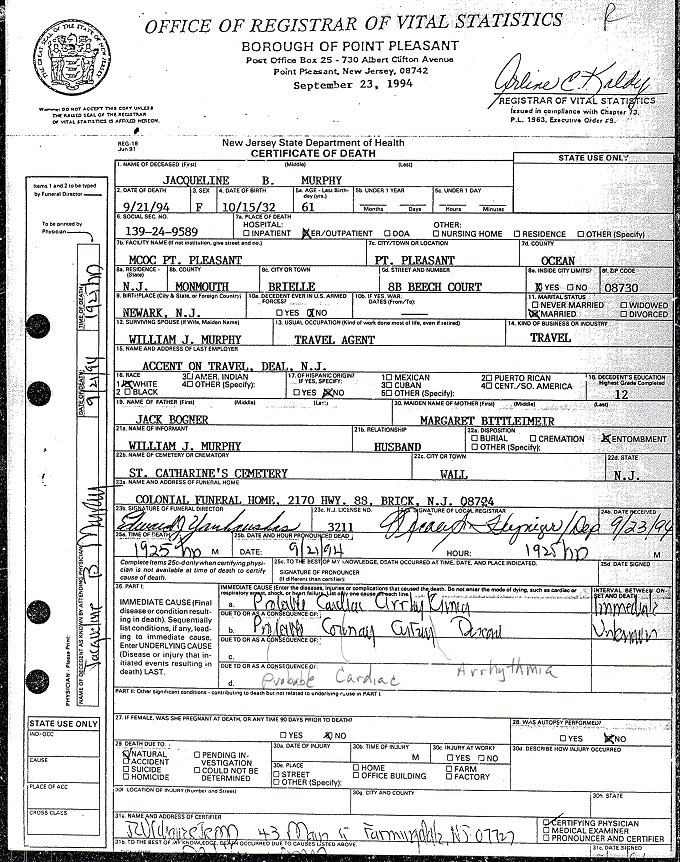 OFFICE OF REGISTRAR OF VITAL STATISTICS
BOROUGH OF POINT PLEASANT
Post Office Box 25 - 730 Albert Clifton Avenue
Point Pleasant, New Jersey, 08742
September 23, 1994
R
Arline C. Kaldy
REGISTRAR OF VITAL STATISTICS
Issued in compliance with Chapter 73,
P.L. 1963, Executive Order #9.
Warning: DO NOT ACCEPT THIS COPY UNLESS
THE RAISED SEAL OF THE REGISTRAR
OF VITAL STATISTICS IS AFFIXED HEREON.
REG-18
Jun 91
New Jersey State Department of Health
CERTIFICATE OF DEATH
STATE USE ONLY
Items 1 and 2 to be typed
by Funeral Director
To be printed by
Physician
1. NAME OF DECEASED (First) (Middle) (Last)
JACQUELINE B. MURPHY
2. DATE OF DEATH 3. SEX 4. DATE OF BIRTH 5a. AGE - Last Birthday (yrs.) 5b. UNDER 1 YEAR 5c. UNDER 1 DAY
9/21/94 F 10/15/32 61 Months Days Hours Minutes
6. SOCIAL SEC. NO. 7a. PLACE OF DEATH
HOSPITAL: OTHER:
139-24-9589 INPATIENT ER/OUTPATIENT DOA NURSING HOME RESIDENCE OTHER (Specify)
7b. FACILITY NAME (If not institution, give street and no.) 7c. CITY/TOWN OR LOCATION 7d. COUNTY
MCOC PT. PLEASANT PT. PLEASANT OCEAN
8a. RESIDENCE - (State) 8b. COUNTY 8c. CITY OR TOWN 8d. STREET AND NUMBER 8e. INSIDE CITY LIMITS? 8f. ZIP CODE
N.J. MONMOUTH BRIELLE 8B BEECH COURT YES NO 08730
9. BIRTHPLACE (City & State, or Foreign Country) 10a. DECEASED EVER IN U.S. ARMED FORCES? 10b. IF YES, WAR: DATES (From/To): 11. MARITAL STATUS
NEWARK, N.J. YES NO NEVER MARRIED WIDOWED
MARRIED DIVORCED
12. SURVIVING SPOUSE (If Wife, Maiden Name) 13. USUAL OCCUPATION (Kind of work done most of life, even if retired) 14. KIND OF BUSINESS OR INDUSTRY
WILLIAM J. MURPHY TRAVEL AGENT TRAVEL
15. NAME AND ADDRESS OF LAST EMPLOYER
ACCENT ON TRAVEL, DEAL, N.J.
16. RACE 3 AM. INDIAN 17. OF HISPANIC ORIGIN? IF YES, SPECIFY: 1 MEXICAN 2 PUERTO RICAN 18. DECEDENT'S EDUCATION Highest Grade Completed
1 WHITE 4 OTHER (Specify): YES NO 3 CUBAN 4 CENT./SO. AMERICA
2 BLACK 5 OTHER (Specify): 12
19. NAME OF FATHER (First) (Middle) (Last) 20. MAIDEN NAME OF MOTHER (First) (Middle) (Last)
JACK BOGNER MARGARET BITTLEIMEIR
21a. NAME OF INFORMANT 21b. RELATIONSHIP 22a. DISPOSITION
WILLIAM J. MURPHY HUSBAND BURIAL CREMATION ENTOMBMENT
OTHER (Specify):
22b. NAME OF CEMETERY OR CREMATORY 22c. CITY OR TOWN 22d. STATE
ST. CATHARINE'S CEMETERY WALL N.J.
23a. NAME AND ADDRESS OF FUNERAL HOME
COLONIAL FUNERAL HOME, 2170 HWY. 88, BRICK, N.J. 08724
23b. SIGNATURE OF FUNERAL DIRECTOR 23c. N.J. LICENSE NO. SIGNATURE OF LOCAL REGISTRAR 24b. DATE RECEIVED
3211 9/23/94
25a. TIME OF DEATH 25b. DATE AND HOUR PRONOUNCED DEAD
1925 M DATE: 9/21/94 HOUR: 1925 M
Complete items 25c-d only when certifying physician is not available at time of death to certify cause of death.
25c. TO THE BEST OF MY KNOWLEDGE, DEATH OCCURRED AT TIME, DATE, AND PLACE INDICATED. 25d. DATE SIGNED
SIGNATURE OF PRONOUNCER
(If different than certifier):
26. PART I. IMMEDIATE CAUSE (Enter the diseases, injuries or complications that caused the death. Do not enter the mode of dying, such as cardiac or respiratory arrest, shock, or heart failure. List only one cause on each line.) INTERVAL BETWEEN ONSET AND DEATH
IMMEDIATE CAUSE (Final disease or condition resulting in death). Sequentially list conditions, if any, leading to immediate cause. Enter UNDERLYING CAUSE (Disease or injury that initiated events resulting in death) LAST.
a. Probable Cardiac Arrhythmia Immediate
DUE TO OR AS A CONSEQUENCE OF:
b. Probable Coronary Artery Disease Unknown
DUE TO OR AS A CONSEQUENCE OF:
c.
DUE TO OR AS A CONSEQUENCE OF:
d. Probable Cardiac Arrhythmia
PART II: Other significant conditions - contributing to death but not related to underlying cause in PART I.
27. IF FEMALE, WAS SHE PREGNANT AT DEATH, OR ANY TIME 90 DAYS PRIOR TO DEATH? 28. WAS AUTOPSY PERFORMED?
YES NO YES NO
29. DEATH DUE TO: 30a. DATE OF INJURY 30b. TIME OF INJURY M 30c. INJURY AT WORK? YES NO 30d. DESCRIBE HOW INJURY OCCURRED
NATURAL PENDING INVESTIGATION
ACCIDENT
SUICIDE COULD NOT BE DETERMINED
HOMICIDE
30e. PLACE HOME FARM
STREET OFFICE BUILDING FACTORY
OTHER (Specify):
30f. LOCATION OF INJURY (Number and Street) 30g. CITY AND COUNTY 30h. STATE
31a. NAME AND ADDRESS OF CERTIFIER
43 Main Farmingdale, NJ 07727
CERTIFYING PHYSICIAN
MEDICAL EXAMINER
PRONOUNCER AND CERTIFIER
31b. TO THE BEST OF MY KNOWLEDGE, DEATH OCCURRED DUE TO CAUSES LISTED ABOVE. 31c. DATE SIGNED
STATE USE ONLY
IND./OCC
CAUSE
PLACE OF ACC
CROSS CLASS
PHYSICIAN - Please Print:
NAME OF DECEDENT AS KNOWN BY ATTENDING PHYSICIAN
Jacqueline B Murphy
DATE OF DEATH
9/21/94
TIME OF DEATH
1925